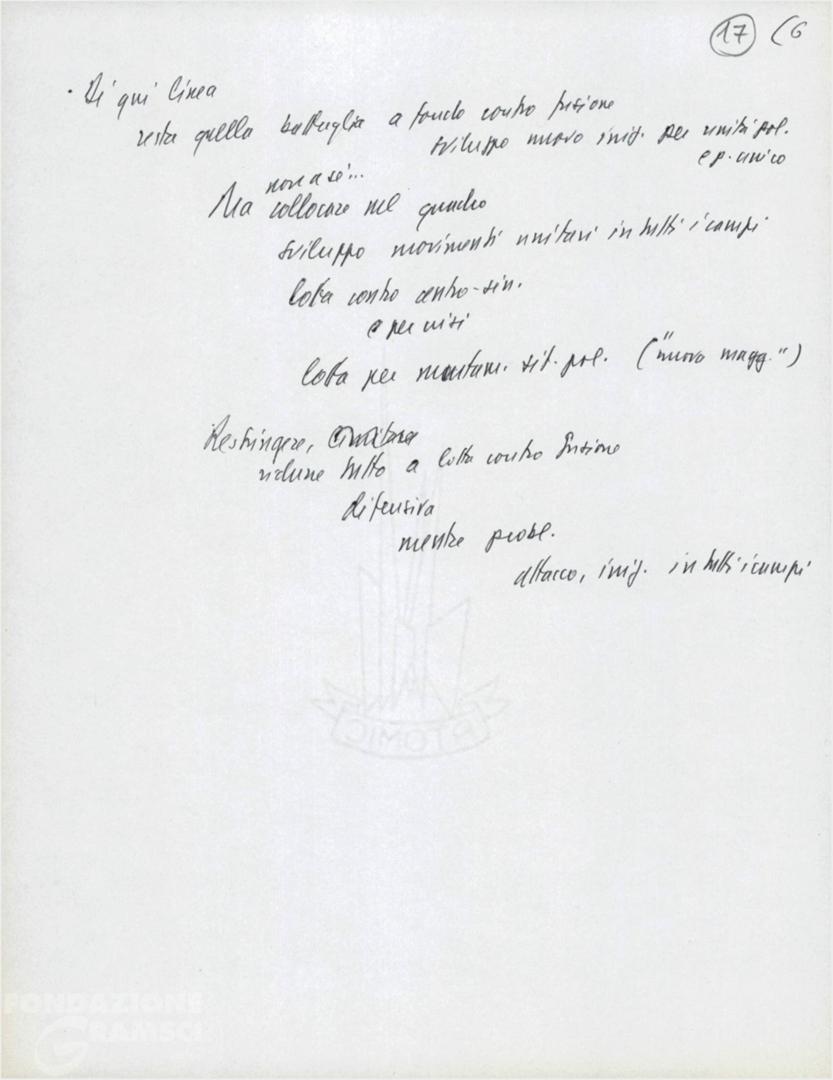 17 (6
· Di qui linea
resta quella battaglia a fondo contro fusione
sviluppo nuova iniz. per unità pol.
e p. unico
non a sé...
Ma collocare nel quadro
sviluppo movimenti unitari in tutti i campi
lotta contro centro-sin.
e per
lotta per mutam. sit. pol. ("nuova magg.")
Restringere, limitare
ridurre tutto a lotta contro fusione
difensiva
mentre probl.
attacco, iniz. in tutti i campi
PTOMIC
FONDAZIONE
GRAMSCI